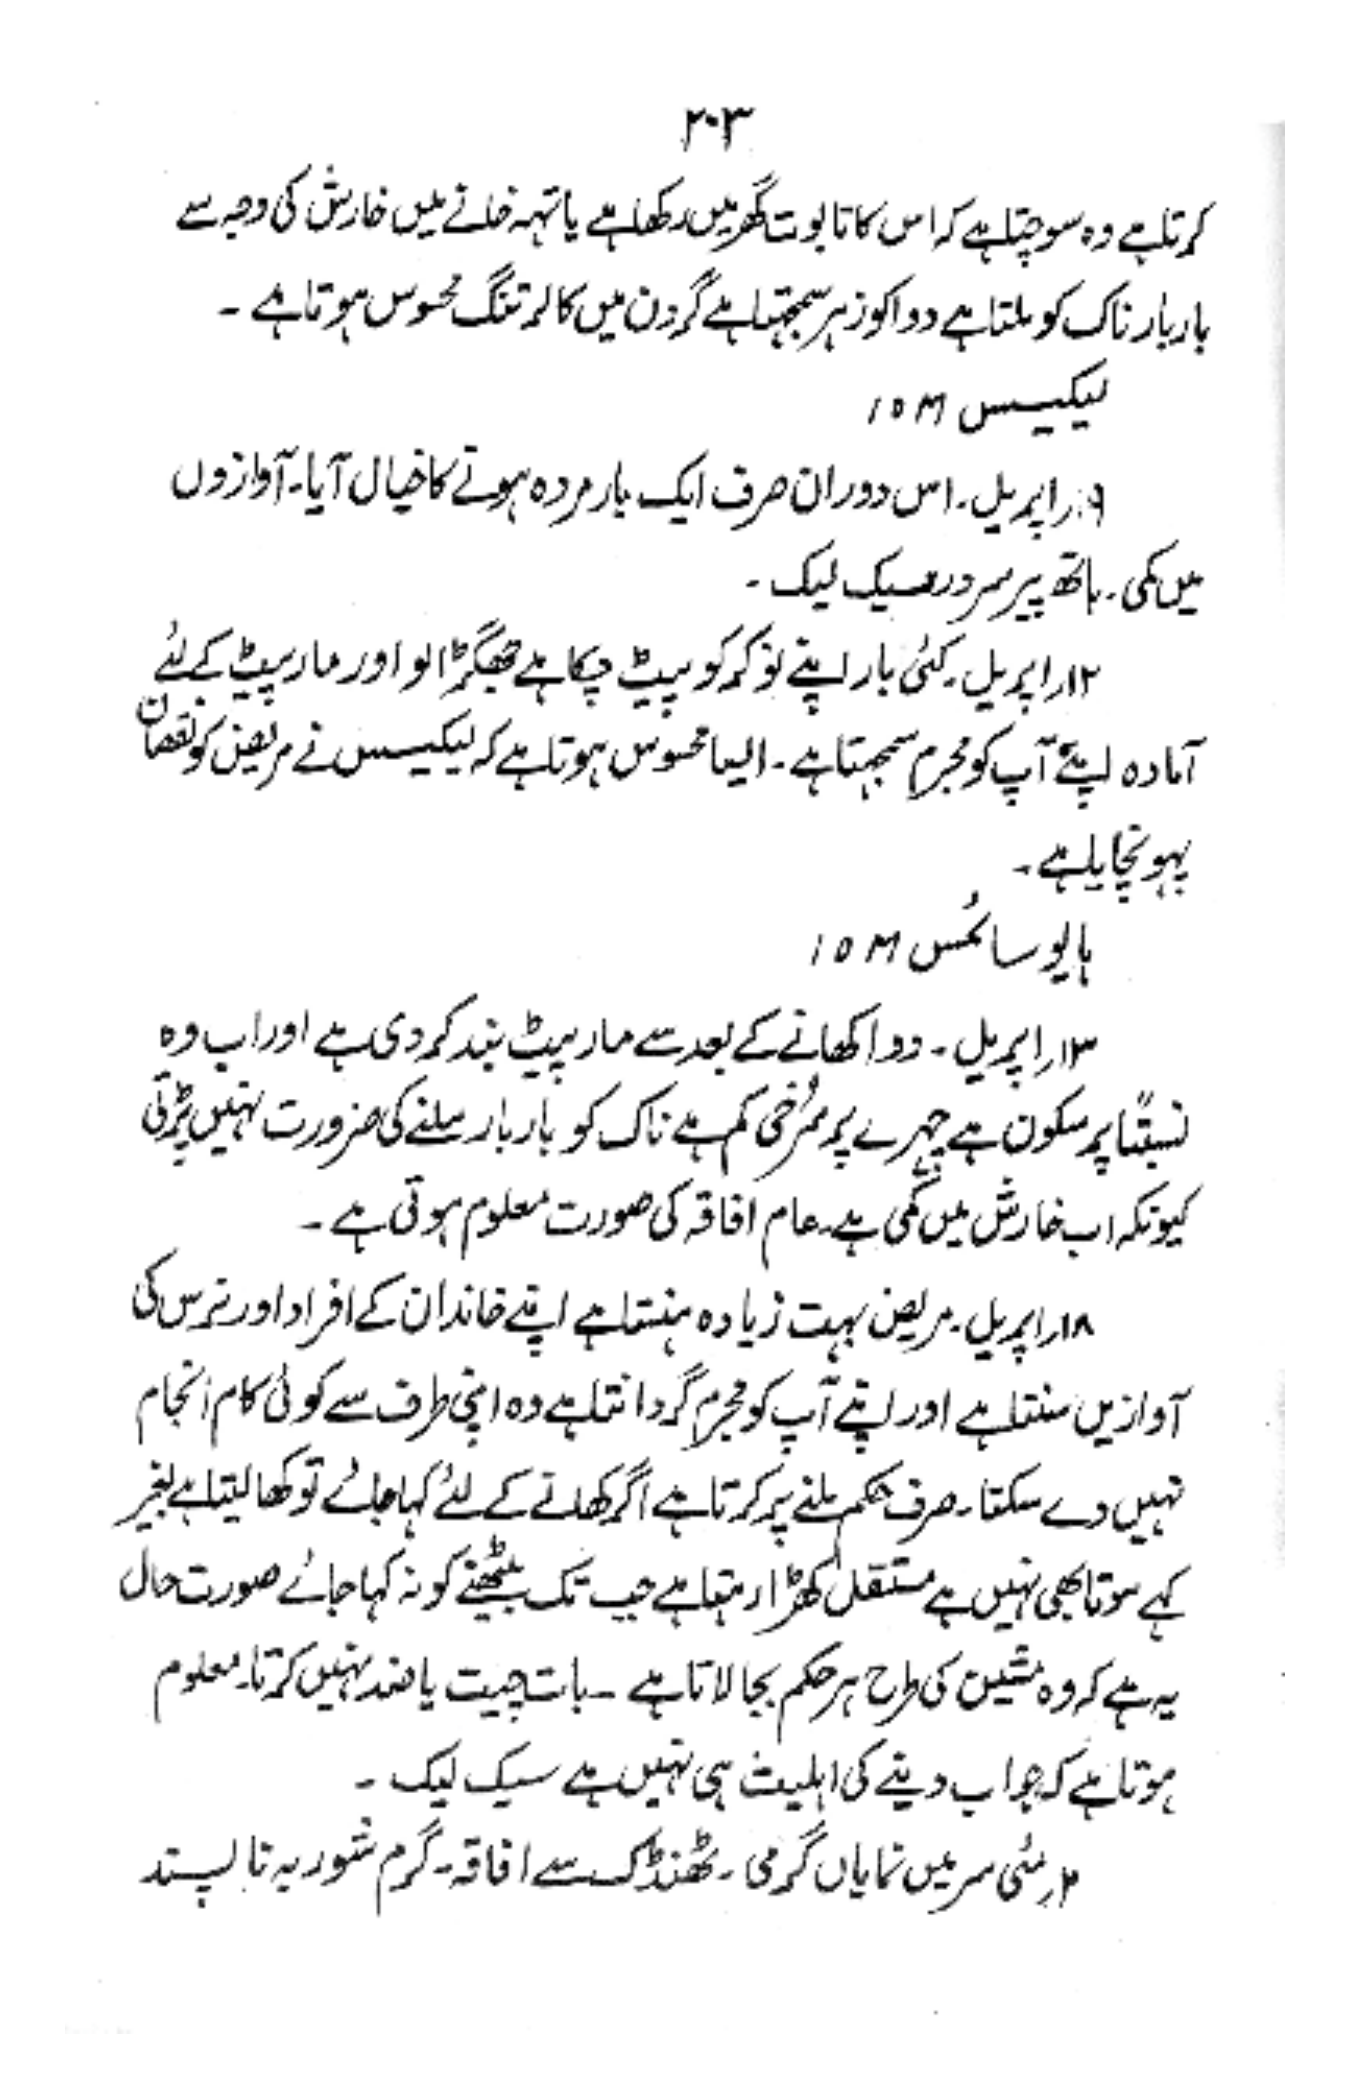 ۲۰۳
کرتا ہے وہ سوچتا ہے کہ اس کا تابوت گھر میں رکھا ہے یا تہہ خانے میں خارش کی وجہ سے
بار بار ناک کو ملتا ہے دوا کو زہر سمجھتا ہے گردن میں کالر تنگ محسوس ہوتا ہے ۔
لیکیسس ۱۰M
۹ر اپریل ۔ اس دوران صرف ایک بار مردہ ہونے کا خیال آیا ۔ آوازوں
میں کمی ۔ ہاتھ پیر سرد سیک لیک ۔
۱۲ر اپریل ۔ کئی بار اپنے نوکر کو پیٹ چکا ہے جھگڑالو اور مارپیٹ کے لئے
آمادہ اپنے آپ کو مجرم سمجھتا ہے ۔ ایسا محسوس ہوتا ہے کہ لیکیسس نے مریض کو نقصان
پہونچایا ہے ۔
ہایوسائمس ۱۰M
۱۳ر اپریل ۔ دوا کھانے کے بعد سے مارپیٹ بند کر دی ہے اور اب وہ
نسبتاً پر سکون ہے چہرے پر سُرخی کم ہے ناک کو بار بار ملنے کی ضرورت نہیں پڑتی
کیونکہ اب خارش میں کمی ہے ۔ عام افاقہ کی صورت معلوم ہوتی ہے ۔
۱۸ر اپریل ۔ مریض بہت زیادہ ہنستا ہے اپنے خاندان کے افراد اور نرس کی
آوازیں سنتا ہے اور اپنے آپ کو مجرم گردانتا ہے وہ اپنی طرف سے کوئی کام انجام
نہیں دے سکتا ۔ صرف حکم ملنے پر کرتا ہے اگر کھانے کے لئے کہا جائے تو کھا لیتا ہے بغیر
کہے سوتا بھی نہیں ہے مستقل کھڑا رہتا ہے جب تک بیٹھنے کو نہ کہا جائے صورت حال
یہ ہے کہ وہ مشین کی طرح ہر حکم بجا لاتا ہے ۔ بات چیت یا ضد نہیں کرتا ۔ معلوم
ہوتا ہے کہ جواب دینے کی اہلیت ہی نہیں ہے سیک لیک ۔
۲ر مئی سر میں نمایاں گرمی ۔ ٹھنڈک سے افاقہ ۔ گرم شوربہ ناپسند